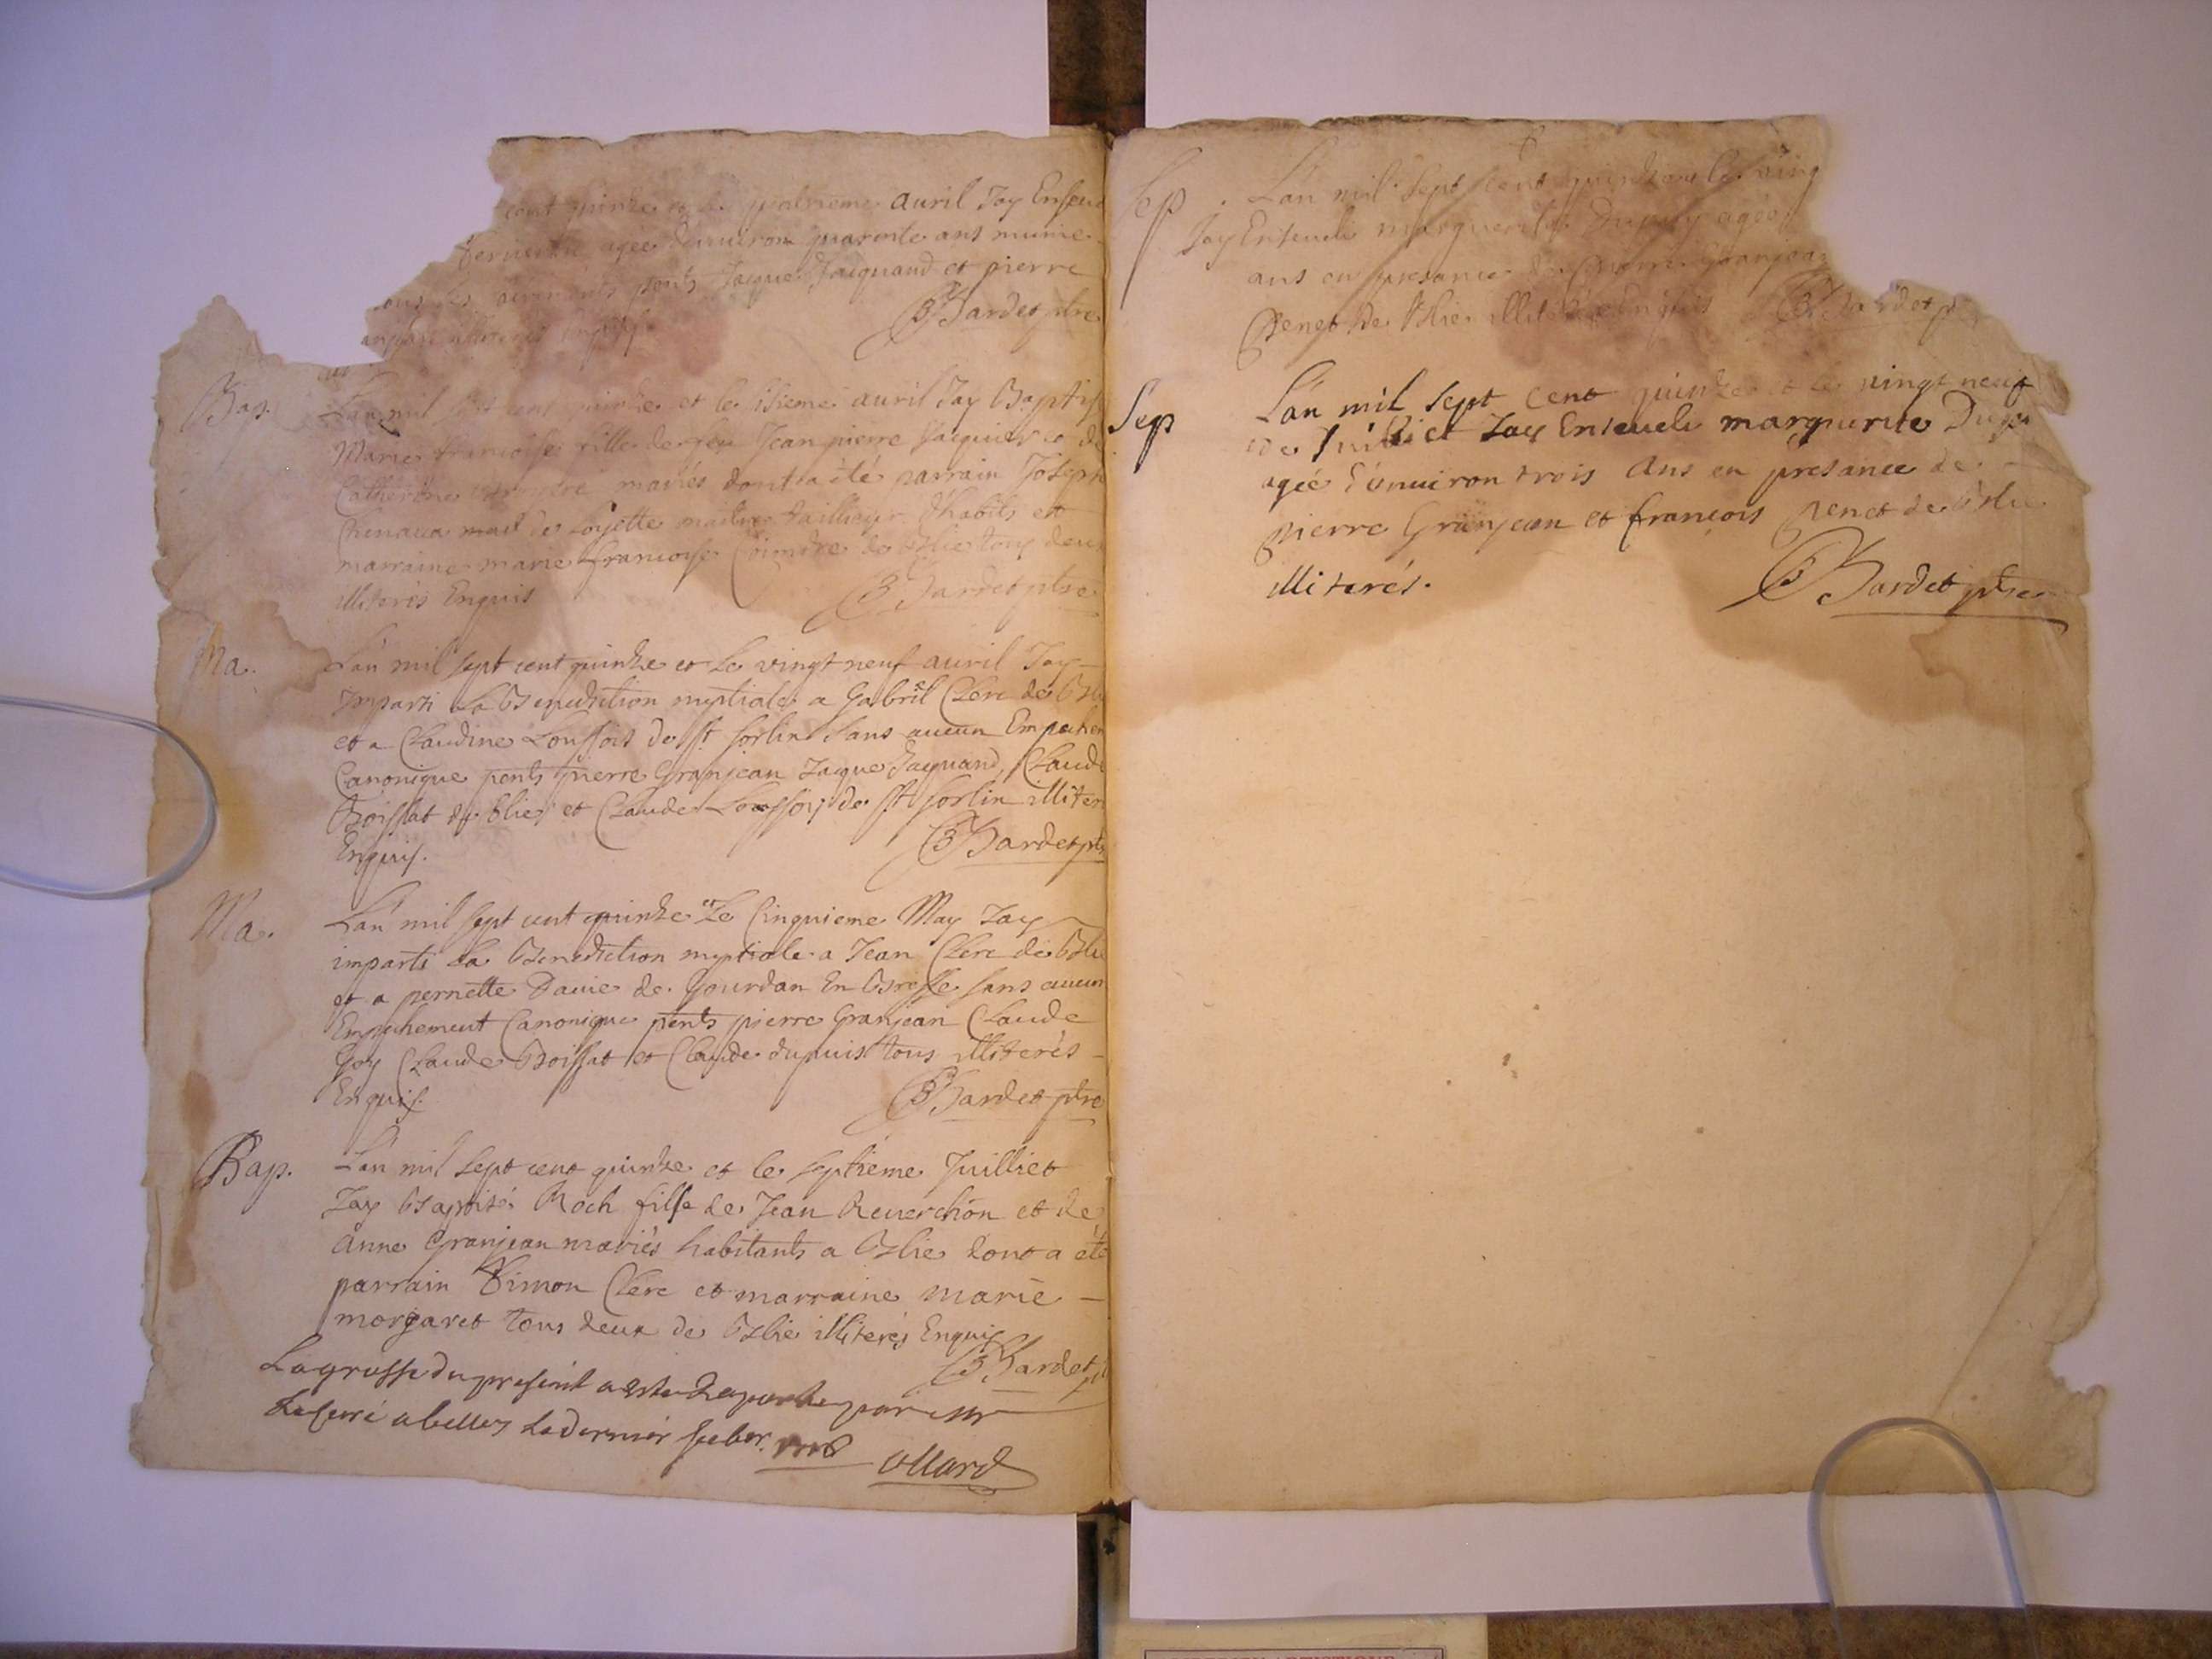 cent quinze et le quatrieme auril Jay Enseue
agée denuiron quarante ans munie
pnts Jaque Jacquand et pierre
illiteres Enquis
Bardet ptre
Bap.
L'an mil sept cent quinze et le sisieme auril Jay Baptis
Marie francoise fille de feu Jean pierre Jacquier et de
Catherine mariés dont a été parrain Joseph
de Loyette maitre taillieur d'habits et
marraine marie francoise Coindre de Blie tous deux
illiterés Enquis
Bardet ptre
Ma.
L'an mil sept cent quinze et Le vingt neuf auril Jay
Imparti La Benediction nuptiale a Gabriel Clerc de Blie
et a Claudine Loussois de st sorlin sans aucun Empechem
Canonique pents pierre Granjean Jaque Jaquand, Claude
Boissat de Blie et Claude Loussois de st sorlin illiter
Enquis.
Bardet ptre
Ma.
L'an mil sept cent quinze et Le Cinquieme May Jay
imparti La Benediction nuptiale a Jean Clerc de Blie
et a pernette Dauie de Gourdan En Bresse sans aucun
Empechement Canonique pents pierre Granjean Claude
Goy Claude Boissat et Claude dupuis tous illiterés
Enquis.
Bardet ptre
Bap.
L'an mil sept cent quinze et le septieme Juilliet
Jay Baptisé Roch fils de Jean Reuerchon et de
Anne Granjean mariés habitants a Blie dont a eté
parrain Simon Clerc et marraine marie
morgaret tous deux de Blie illiterés Enquis
Bardet
La grosse du present a este Raportee par mr
Le curé a belley Le dernier feber.
Allard
Sep
L'an mil sept cent quinze et le ving
Jay Enseueli marguerite Dupuy agée
ans en presance de pierre Granjean
penet de Blie illiterés Enquis Bardet p
Sep
L'an mil sept cent quinze et le vingt neuf
de Juilliet Jay Enseueli marguerite Dupu
agée d'enuiron trois ans en presance de
pierre Granjean et françois penet de Blie
illiterés.
Bardet ptre